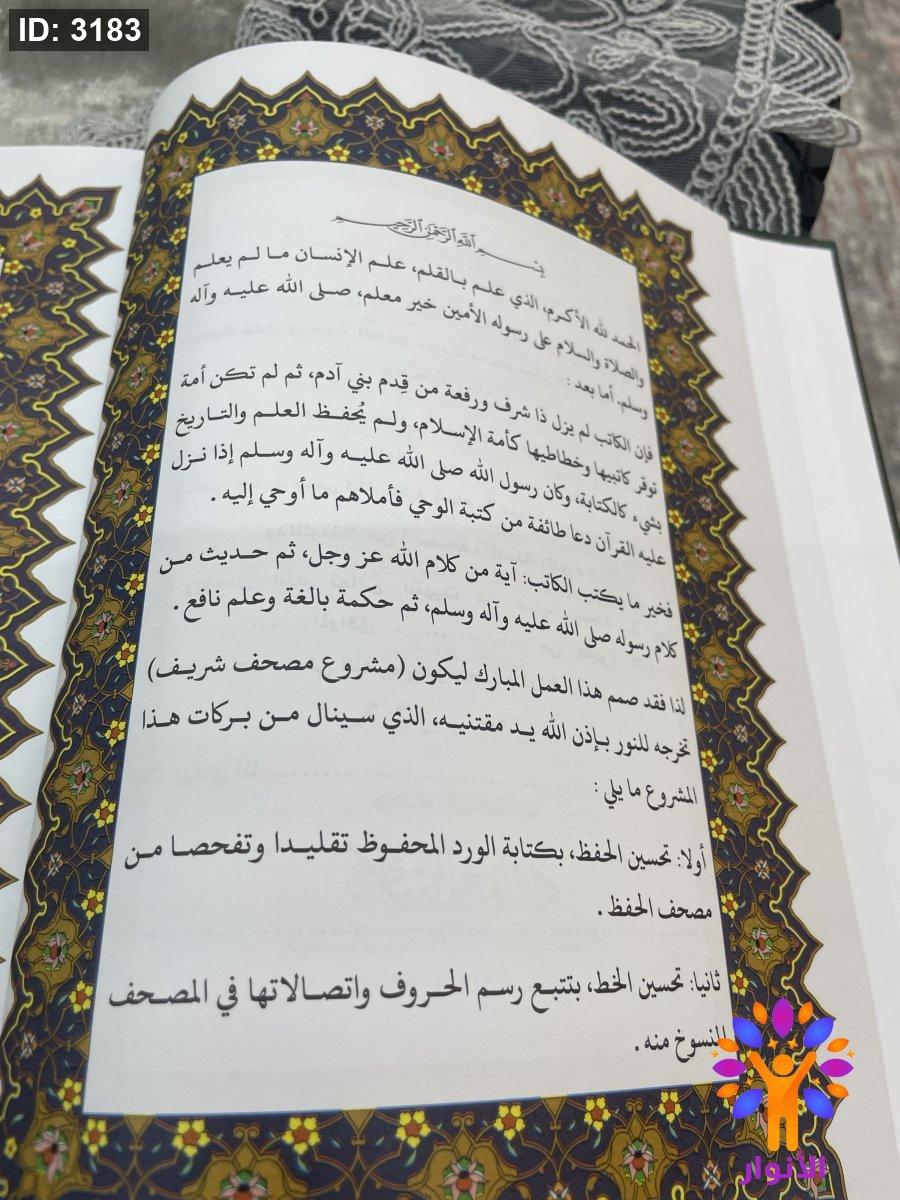 ID: 3183
بِسْمِ اللَّهِ الرَّحْمَنِ الرَّحِيمِ
الحمد لله الأكرم، الذي علم بالقلم، علم الإنسان ما لم يعلم
والصلاة والسلام على رسوله الأمين خير معلم، صلى الله عليه وآله
وسلم، أما بعد :
فإن الكاتب لم يزل ذا شرف ورفعة من قِدم بني آدم، ثم لم تكن أمة
توقر كاتبيها وخطاطيها كأمة الإسلام، ولم يُحفظ العلم والتاريخ
بشيء كالكتابة، وكان رسول الله صلى الله عليه وآله وسلم إذا نزل
عليه القرآن دعا طائفة من كتبة الوحي فأملاهم ما أوحي إليه .
فخير ما يكتب الكاتب: آية من كلام الله عز وجل، ثم حديث من
كلام رسوله صلى الله عليه وآله وسلم، ثم حكمة بالغة وعلم نافع .
لذا فقد صمم هذا العمل المبارك ليكون (مشروع مصحف شريف)
تخرجه للنور بإذن الله يد مقتنيه، الذي سينال من بركات هذا
المشروع ما يلي :
أولا: تحسين الحفظ، بكتابة الورد المحفوظ تقليدا وتفحصا من
مصحف الحفظ .
ثانيا: تحسين الخط، بتتبع رسم الحروف واتصالاتها في المصحف
المنسوخ منه .
الأنوار